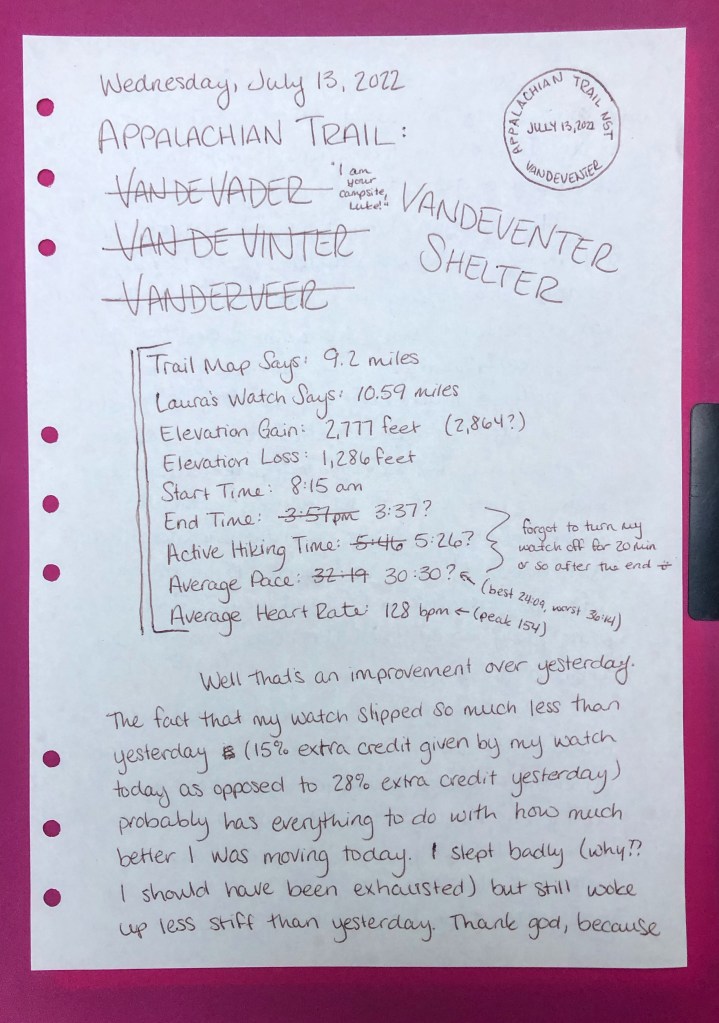 Wednesday, July 13, 2022
APPALACHIAN TRAIL NST
JULY 13, 2022
VANDEVENTER
APPALACHIAN TRAIL:
VAN DE VADER
"I am
your
campsite,
Luke!"
VANDEVENTER
SHELTER
VAN DE VINTER
VANDERVEER
Trail Map Says: 9.2 miles
Laura's Watch Says: 10.59 miles
Elevation Gain: 2,777 feet (2,864?)
Elevation Loss: 1,286 feet
Start Time: 8:15 am
End Time: 3:57pm 3:37?
Active Hiking Time: 5:46 5:26?
Average Pace: 32:19 30:30?
forgot to turn my
watch off for 20 min
or so after the end
(best 24:09, worst 36:14)
Average Heart Rate: 128 bpm ← (peak 154)
Well that's an improvement over yesterday.
The fact that my watch slipped so much less than
yesterday (15% extra credit given by my watch
today as opposed to 28% extra credit yesterday)
probably has everything to do with how much
better I was moving today. I slept badly (why??
I should have been exhausted) but still woke
up less stiff than yesterday. Thank god, because